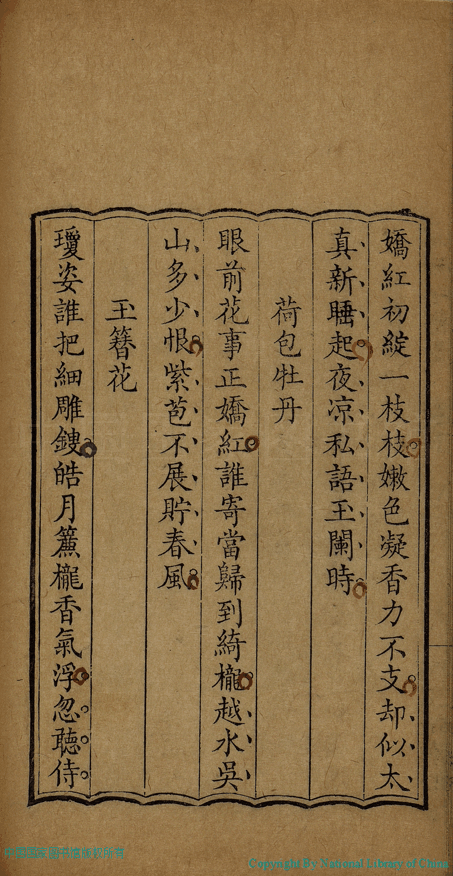 嬌紅初綻一枝枝嫩色凝香力不支却似太
真新睡起夜凉私語玉闌時
荷包牡丹
眼前花事正嬌紅誰寄當歸到綺櫳越水吳
山多少恨紫苞不展貯春風
玉簪花
瓊姿誰把細雕鏤皓月簾櫳香氣浮忽聽侍
Copyright By National Library of China